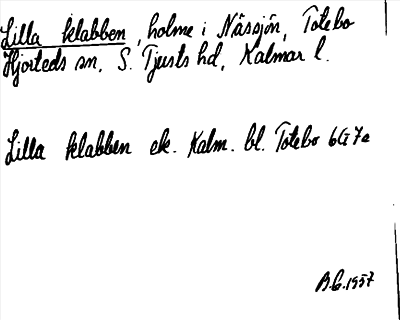 Lilla klabben, holme i Nässjön, Totebo
Hjorteds sn, S. Tjusts hd, Kalmar l.
Lilla klabben ek. Kalm. bl. Totebo 6G7e
B.G. 1957